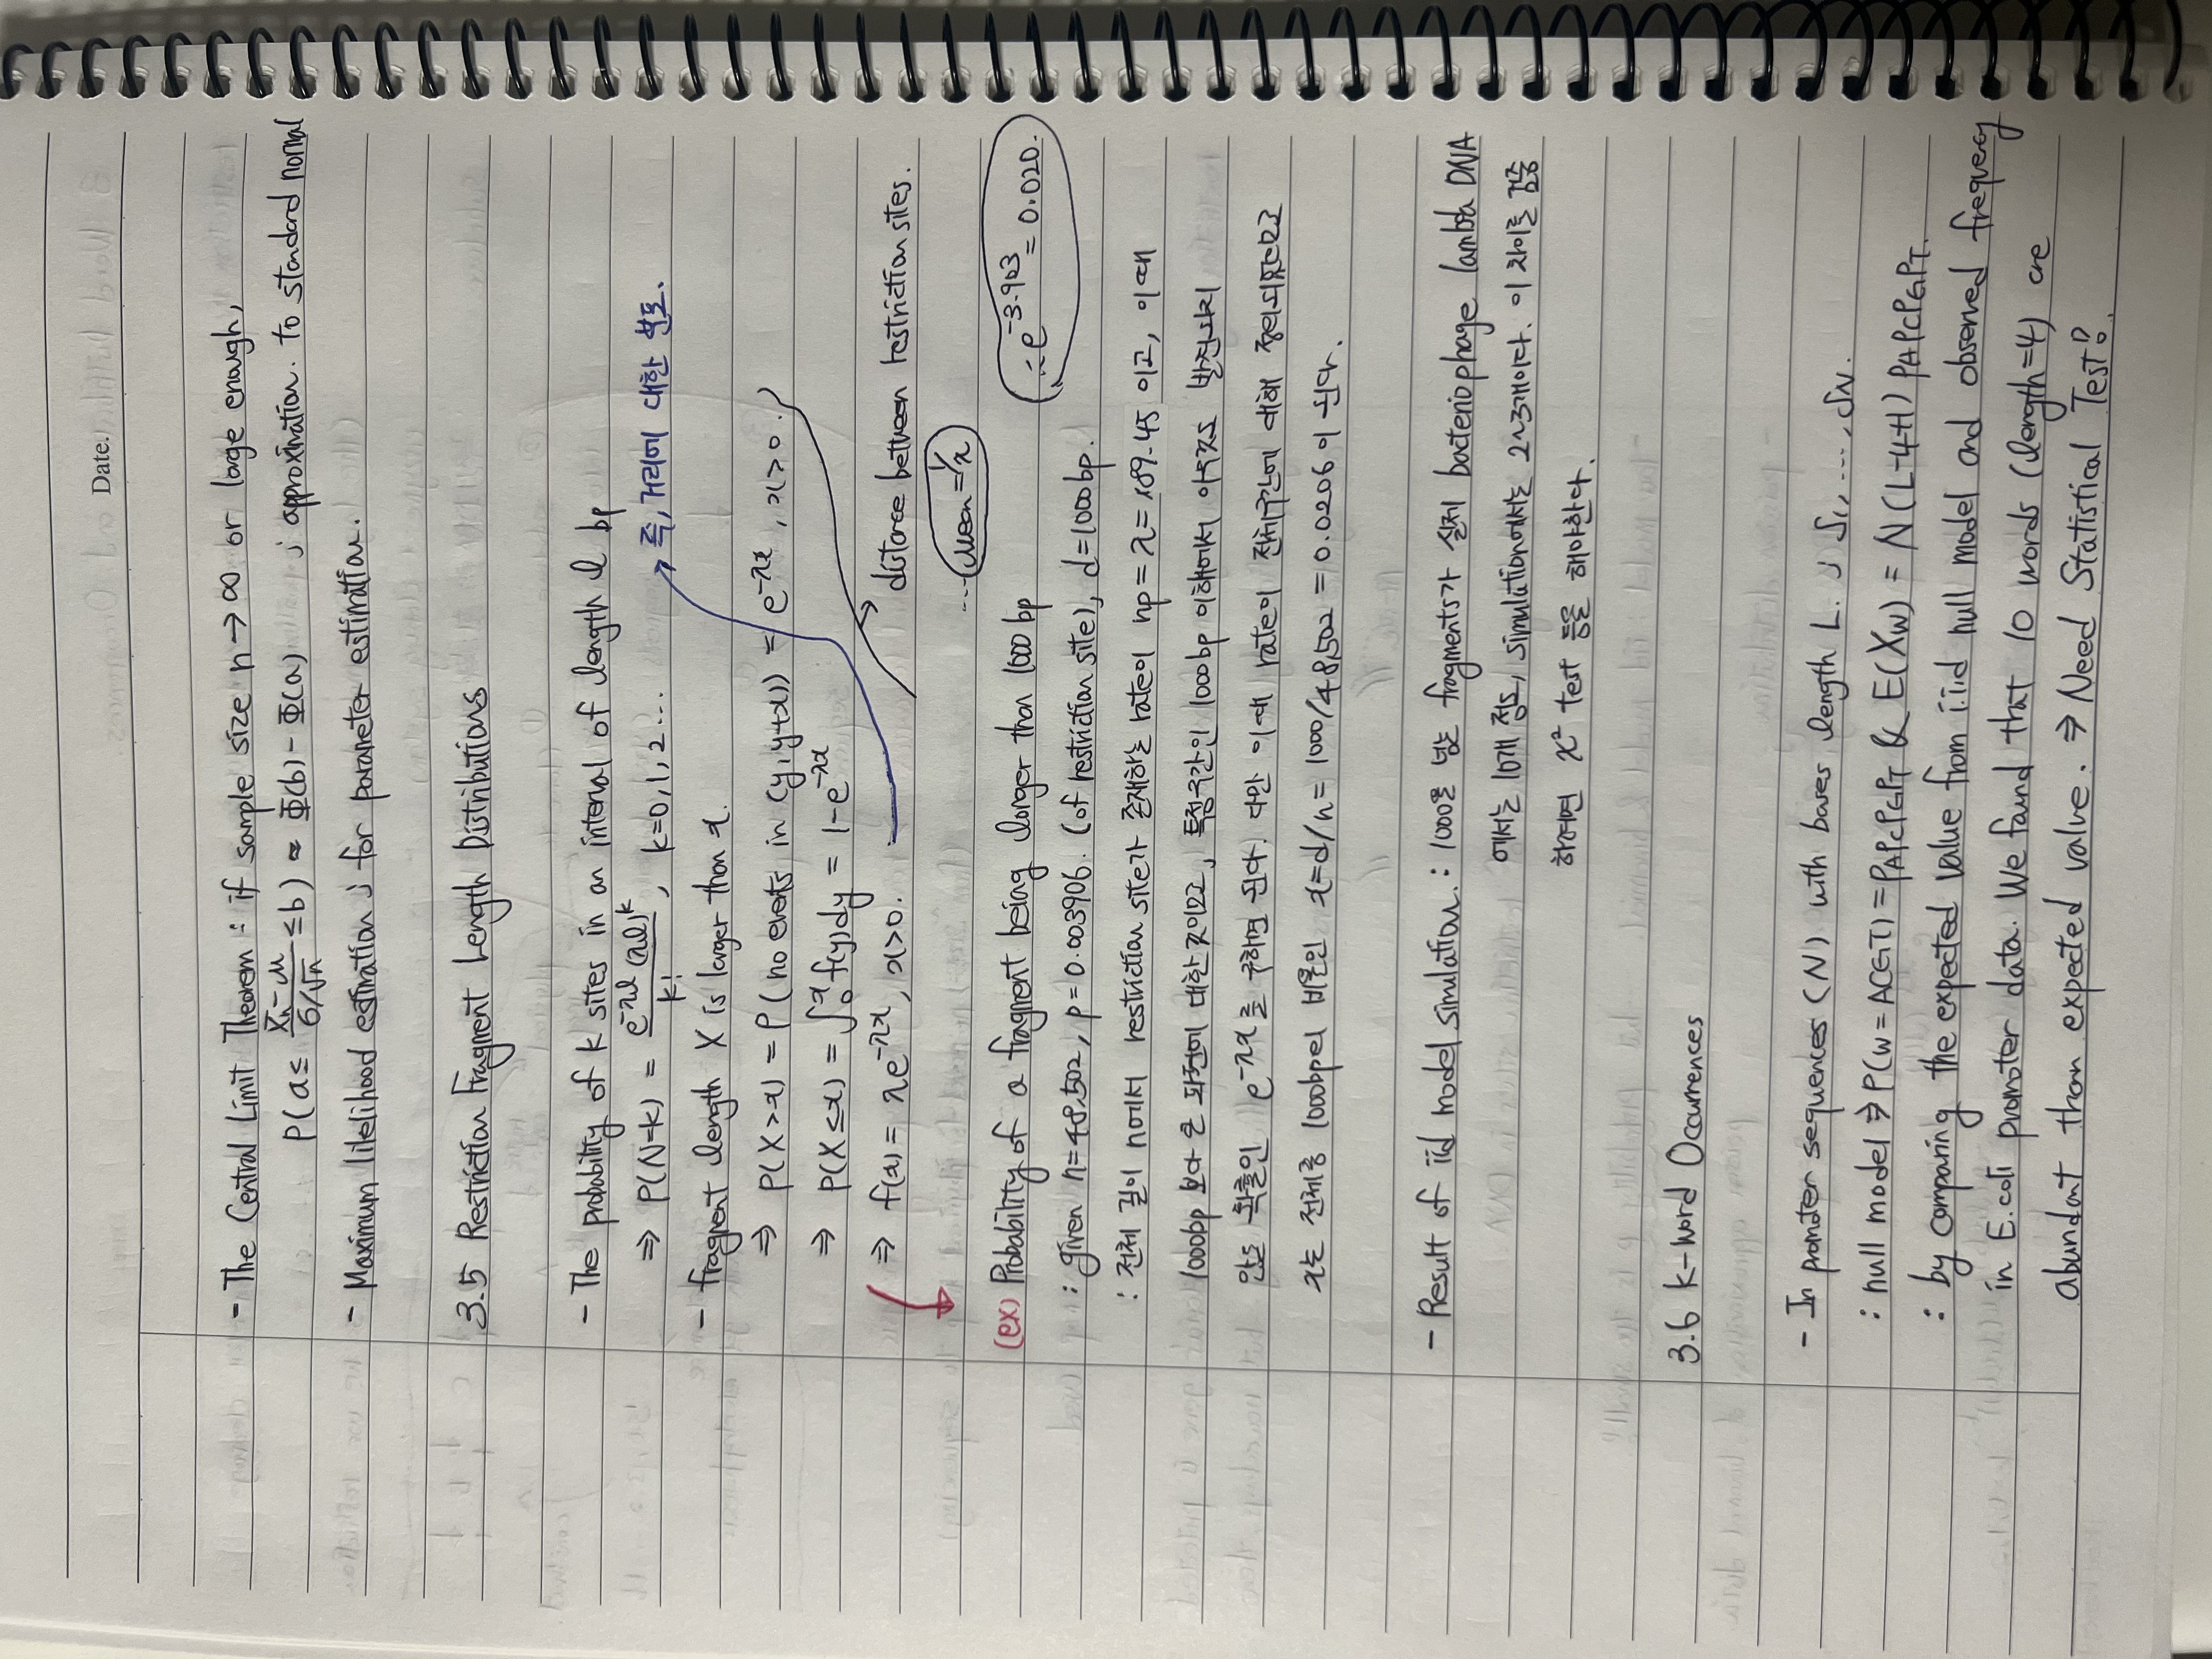 Date.
- The Central Limit Theorem : if sample size n→∞ or large enough,
P(a ≤ (X̄n-μ)/(σ/√n) ≤ b) ≈ Φ(b) - Φ(a) ; approximation. to standard normal
- Maximum likelihood estimation ; for parameter estimation.
3.5 Restriction Fragment Length Distributions
- The probability of k sites in an interval of length l bp
⇒ P(N=k) = e^-λl (λl)^k / k! , k=0,1,2... → 즉, 거리에 대한 분포.
- fragment length X is larger than x.
⇒ P(X>x) = P(no events in (y,y+x)) = e^-λx , x>0.
⇒ P(X≤x) = ∫0^x f(y)dy = 1-e^-λx
⇒ f(x) = λe^-λx, x>0. → distance between restriction sites.
... (Mean=1/λ)
(ex) Probability of a fragment being longer than 1000 bp ∴ e^-3.903 = 0.020.
: given n=48,502, p=0.003906. (of restriction site), d=1000bp.
: 전체 길이 n에서 restriction site가 존재하는 rate이 np=λ=189.45 이고, 이때
1000bp 보다 큰 파편에 대한 것이므로, 특정구간인 1000bp 이해에서 아무것도 발견되지
않을 확률인 e^-λx 를 구하면 된다. 다만 이때 rate이 전체구간에 대해 정의되었으므로
x는 전체중 1000bp의 비율인 x=d/n = 1000/48,502 = 0.0206 이 된다.
- Result of iid model simulation. : 1000을 넘는 fragments가 실제 bacteriophage lambda DNA
에서는 10개 정도, simulation에서는 2~3개이다. 이 차이를 검증
하려면 χ² test 등을 해야한다.
3.6 k-word Occurrences
- In promoter sequences (N) with bases length L. ; S1, ...., SN.
: null model ⇒ P(w=ACGT) = PAPCPGPT & E(Xw) = N(L-4+1) PAPCPGPT.
: by comparing the expected value from i.i.d null model and observed frequency
in E.coli promoter data. We found that 10 words (length=4) are
abundant than expected value. ⇒ Need Statistical Test!!